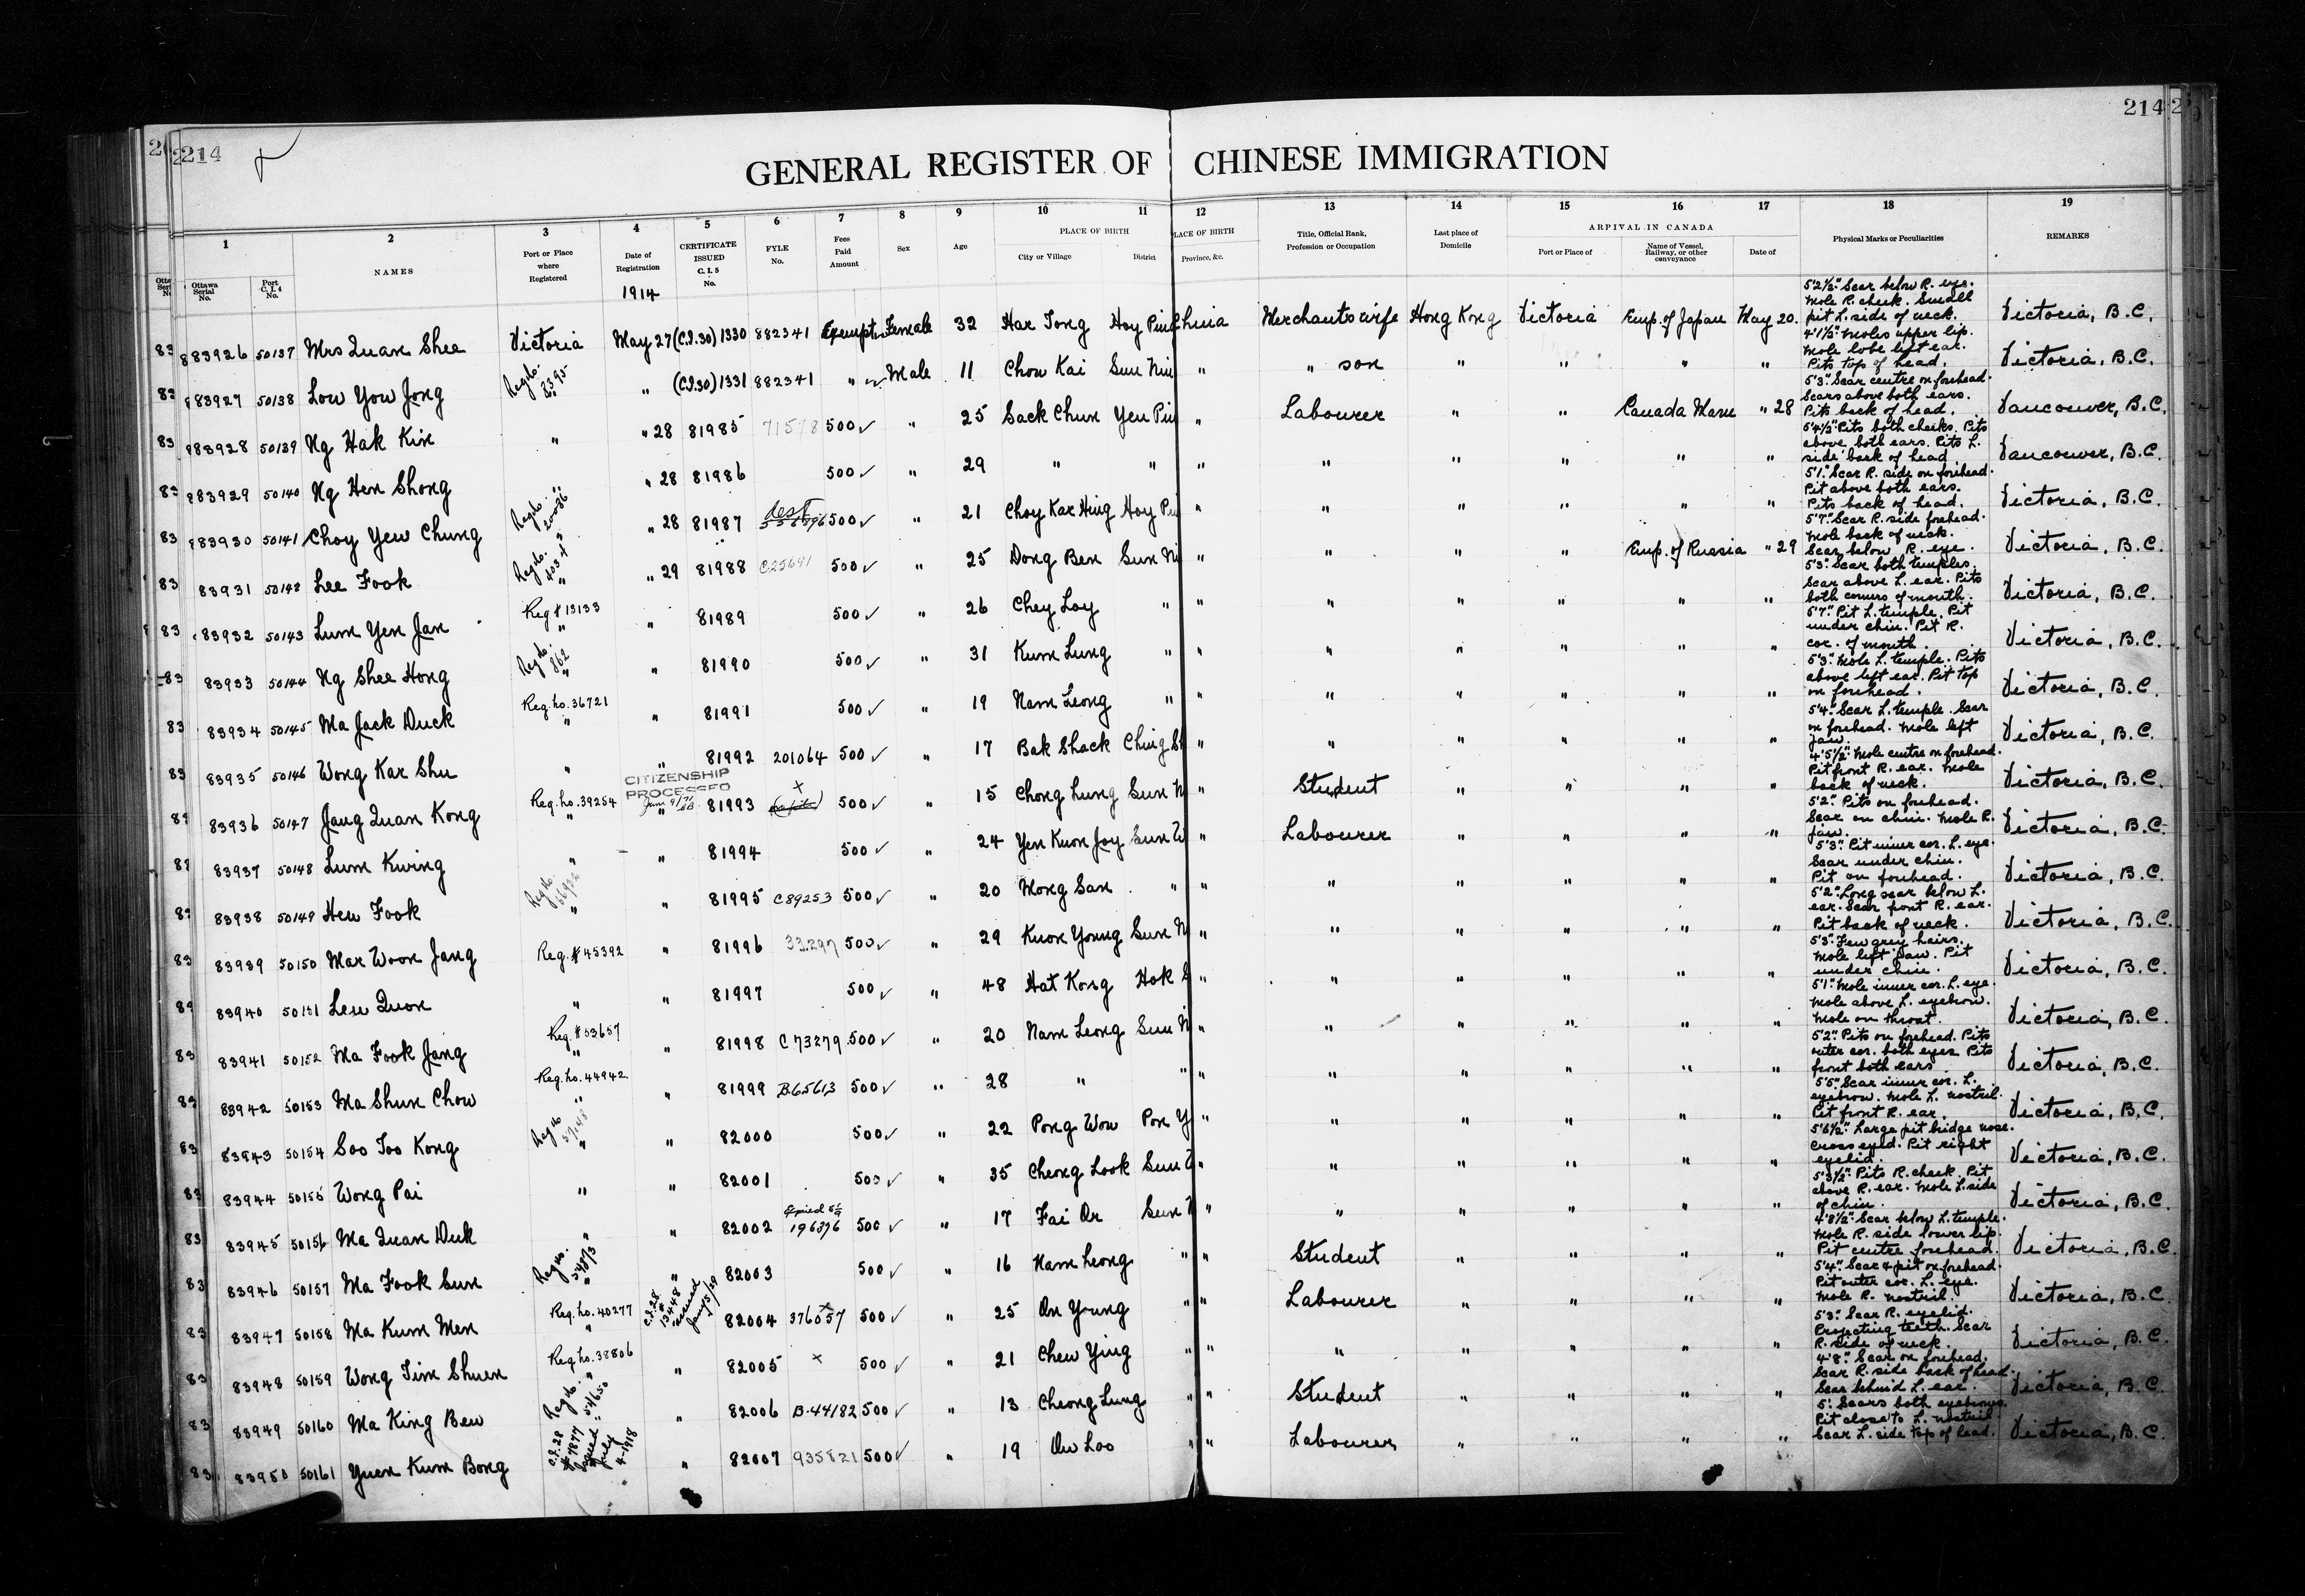 214 214
GENERAL REGISTER OF CHINESE IMMIGRATION
1 2 3 4 5 6 7 8 9 10 11 12 13 14 15 16 17 18 19
Ottawa Serial No. Port C.I.4 No. NAMES Port or Place where Registered Date of Registration CERTIFICATE ISSUED C.I.5 No. FYLE No. Fees Paid Amount Sex Age PLACE OF BIRTH City or Village District PLACE OF BIRTH Province, &c. Title, Official Rank, Profession or Occupation Last place of Domicile ARRIVAL IN CANADA Port or Place of Name of Vessel, Railway, or other conveyance Date of Physical Marks or Peculiarities REMARKS
1914
83926 50137 Mrs Quan Shee Victoria May 27 (C.I.30) 1330 882341 Exempt Female 32 Har Tong Hoy Pin China Merchants wife Hong Kong Victoria Emp. of Japan May 20. 5'2½" Scar below R. eye. Mole R. cheek. Small pit L. side of neck. Victoria, B.C.
83927 50138 Low You Jong Reg No. 8395 " (C.I.30) 1331 882341 " Male 11 Chow Kai Sun Nin " " son " " " " 4'1½" Moles upper lip. Mole lobe left ear. Pits top of head. Victoria, B.C.
83928 50139 Ng Hak Kin " " 28 81985 71578 500 ✓ " 25 Sack Chun Yen Pin " Labourer " " Canada Maru " 28 5'3" Scar centre on forehead. Scars above both ears. Pits back of head. Vancouver, B.C.
83929 50140 Ng Hen Shong " " 28 81986 500 ✓ " 29 " " " " " " " " 5'4½" Pits both cheeks. Pits above both ears. Pits L. side back of head. Vancouver, B.C.
83930 50141 Choy Yew Chung Reg No. 20086 " 28 81987 500 ✓ " 21 Choy Kar Hing Hoy Pin " " " " " " 5'1" Scar R. side on forehead. Pit above both ears. Pits back of head. Victoria, B.C.
83931 50142 Lee Fook Reg No. " " 29 81988 C25691 500 ✓ " 25 Dong Ben Sun Ni " " " " Emp. of Russia " 29 5'7" Scar R. side forehead. Mole back of neck. Scar below R. eye. Victoria, B.C.
83932 50143 Lum Yen Jan Reg # 13133 " " 81989 500 ✓ " 26 Chey Loy " " " " " " " 5'3" Scar both temples. Scar above L. ear. Pits both corners of mouth. Victoria, B.C.
83933 50144 Ng Shee Hong Reg No. 862 " " 81990 500 ✓ " 31 Kum Lung " " " " " " " 5'7" Pit L. temple. Pit under chin. Pit R. cor. of mouth. Victoria, B.C.
83934 50145 Ma Jack Duck Reg. No. 36721 " " 81991 500 ✓ " 19 Nam Leong " " " " " " " 5'3" Mole L. temple. Pits above left ear. Pit top on forehead. Victoria, B.C.
83935 50146 Wong Kar Shu " " 81992 201064 500 ✓ " 17 Bak Shack Ching S " " " " " " 5'4" Scar L. temple. Scar on forehead. Mole left jaw. Victoria, B.C.
CITIZENSHIP PROCESSED
83936 50147 Jang Quan Kong Reg. No. 39254 " " 81993 500 ✓ " 15 Chong Lung Sun N " Student " " " " 4'5½" Mole centre on forehead. Pit front R. ear. Mole back of neck. Victoria, B.C.
83937 50148 Lum Kwing " " 81994 500 ✓ " 24 Yen Kwon Joy Sun W " Labourer " " " " 5'2" Pits on forehead. Scar on chin. Mole R. jaw. Victoria, B.C.
83938 50149 Hew Fook Reg No. " " 81995 C89253 500 ✓ " 20 Mong San " " " " " " " 5'3" Pit inner cor. L. eye. Scar under chin. Pit on forehead. Victoria, B.C.
83939 50150 Mar Woon Jang Reg. # 45392 " 81996 33297 500 ✓ " 29 Kwon Young Sun N " " " " " " 5'2" Long scar below L. ear. Scar front R. ear. Pit back of neck. Victoria, B.C.
83940 50151 Leu Quon " " 81997 500 ✓ " 48 Hat Kong Hok S " " " " " " 5'3" Few grey hairs. Mole left jaw. Pit under chin. Victoria, B.C.
83941 50152 Ma Fook Jang Reg. # 53657 " " 81998 C73279 500 ✓ " 20 Nam Leong Sun N " " " " " " 5'1" Mole inner cor. L. eye. Mole above L. eyebrow. Mole on throat. Victoria, B.C.
83942 50153 Ma Shun Chow Reg. No. 44942 " " 81999 B.65613 500 ✓ " 28 " " " " " " " " 5'2" Pits on forehead. Pits outer cor. both eyes. Pits front both ears. Victoria, B.C.
83943 50154 Soo Too Kong Reg No " " 82000 500 ✓ " 22 Pong Wou Pon Y " " " " " " 5'5" Scar inner cor. L. eyebrow. Mole L. nostril. Pit front R. ear. Victoria, B.C.
83944 50155 Wong Pai " " 82001 500 ✓ " 35 Cheong Look Sun " " " " " " 5'6½" Large pit bridge nose. Cross eyed. Pit right eyelid. Victoria, B.C.
83945 50156 Ma Quan Duk " " 82002 196376 500 ✓ " 17 Fai On Sun N " " " " " " 5'3½" Pits R. cheek. Pit above R. ear. Mole L. side of chin. Victoria, B.C.
83946 50157 Ma Fook Sun Reg No. 54873 " " 82003 500 ✓ " 16 Nam Leong " " Student " " " " 4'8½" Scar below L. temple. Mole R. side lower lip. Pit centre forehead. Victoria, B.C.
83947 50158 Ma Kum Men Reg. No. 40277 " C.I.28. # 13448 issued Jany 3/29 82004 376557 500 ✓ " 25 On Young " " Labourer " " " " 5'4" Scar & pit on forehead. Pit outer cor. L. eye. Mole R. nostril. Victoria, B.C.
83948 50159 Wong Tim Shuen Reg No. 38806 " " 82005 x 500 ✓ " 21 Chew Ying " " " " " " " 5'3" Scar R. eyelid. Projecting teeth. Scar R. side of neck. Victoria, B.C.
83949 50160 Ma King Bew Reg No. 54650 " " 82006 B.44182 500 ✓ " 13 Cheong Lung " " Student " " " " 4'8" Scar on forehead. Scar R. side back of head. Scar behind L. ear. Victoria, B.C.
83950 50161 Yuen Kum Bong C.I. 28 # 7877 Issued July 4-1918 " 82007 935821 500 ✓ " 19 On Loo " " Labourer " " " " 5' Scars both eyebrows. Pit close to L. nostril. Scar L. side top of head. Victoria, B.C.